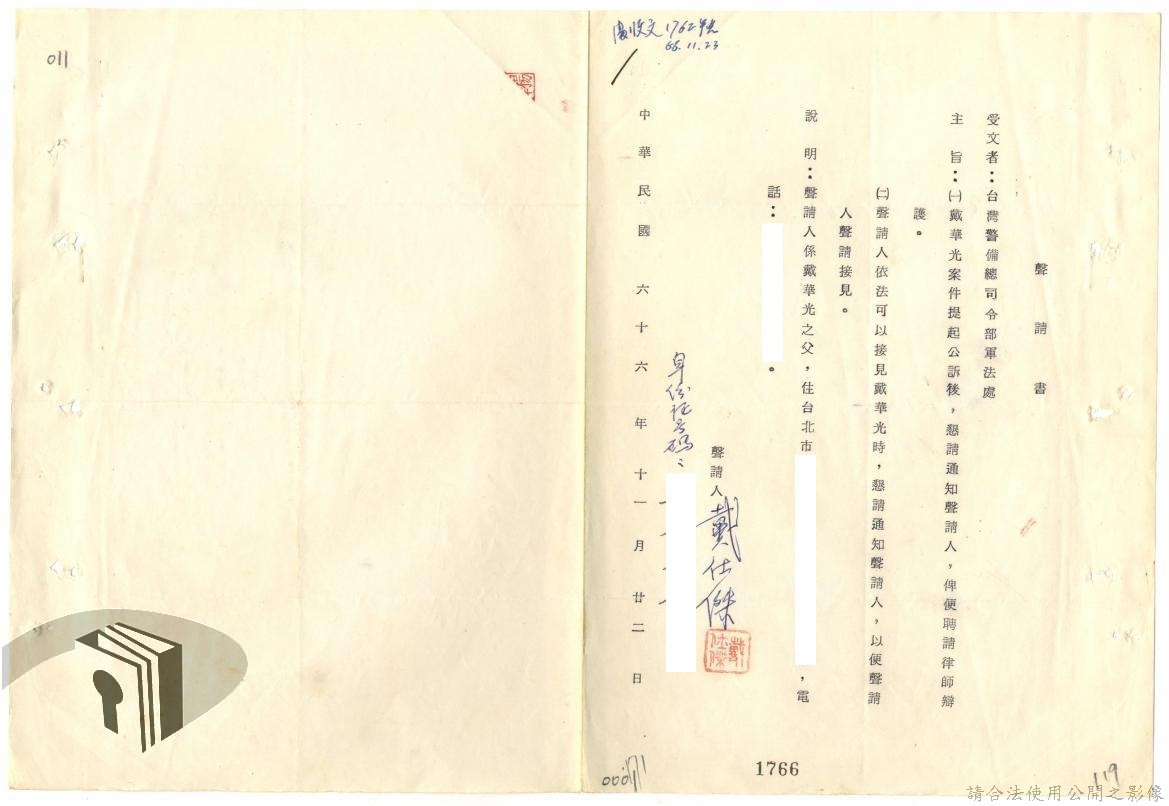 聲請書
受文者：台灣警備總司令部軍法處
主旨：㈠戴華光案件提起公訴後，懇請通知聲請人，俾便聘請律師辯
護。
㈡聲請人依法可以接見戴華光時，懇請通知聲請人，以便聲請
人聲請接見。
說明：聲請人係戴華光之父，住台北市，電
話：。
聲請人 戴仕傑
戴仕傑
身份证号碼：
中華民國六十六年十一月廿二日
收文1762號
66.11.23
011
1766
119
請合法使用公開之影像